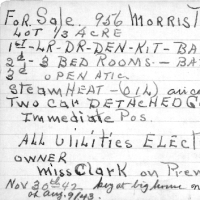 FOR Sale. 956 MORRIST
LOT 1/3 ACRE
1st-LR-DR-DEN-KIT-BA
2d-3 BED ROOMS-BA
3d OPEN ATIC
Steam HEAT-(OIL)
Two CAR DETACHED G
Immediate Pos.
ALL Utilities ELECT
OWNER
miss Clark on Prem
Nov 30th 42 key at big house on
of Aug. 9/43.